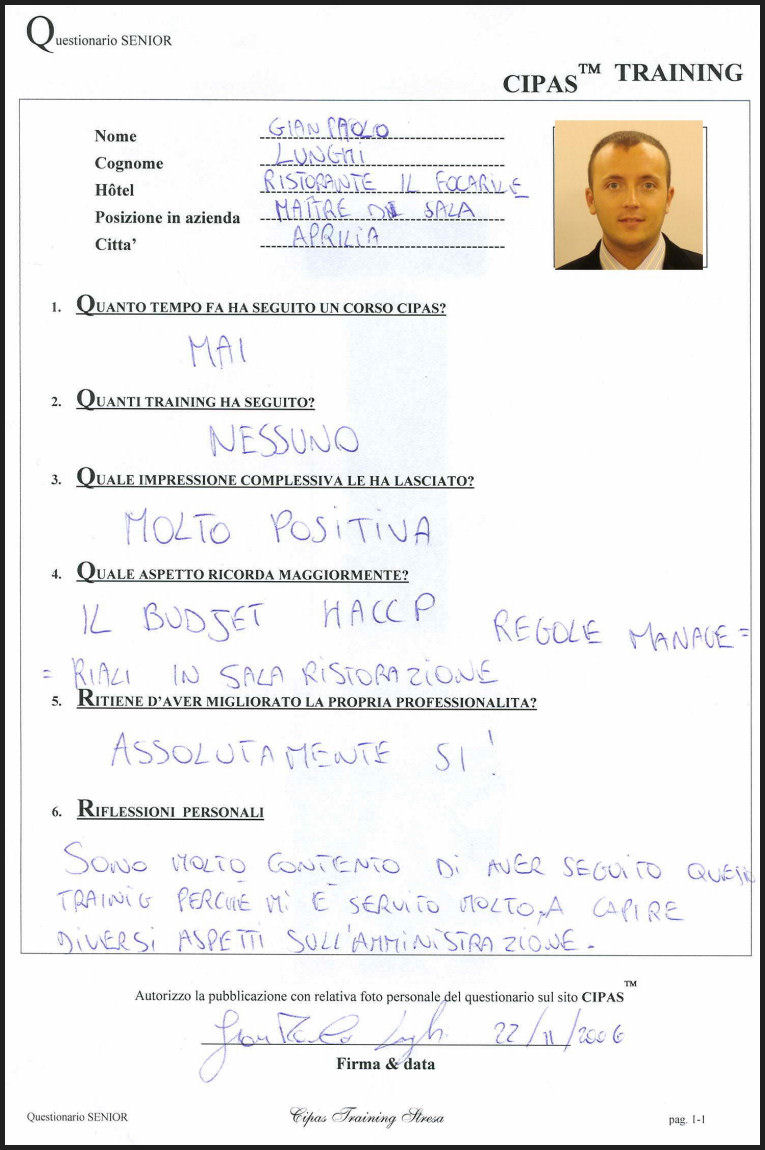 Questionario SENIOR
CIPAS™ TRAINING
Nome GIANPAOLO
Cognome LUNGHI
Hôtel RISTORANTE IL FOCARILE
Posizione in azienda MAITRE DI SALA
Citta’ APRILIA
1. QUANTO TEMPO FA HA SEGUITO UN CORSO CIPAS?
MAI
2. QUANTI TRAINING HA SEGUITO?
NESSUNO
3. QUALE IMPRESSIONE COMPLESSIVA LE HA LASCIATO?
MOLTO POSITIVA
4. QUALE ASPETTO RICORDA MAGGIORMENTE?
IL BUDGET HACCP REGOLE MANAGE=
=RIALI IN SALA RISTORAZIONE
5. RITIENE D’AVER MIGLIORATO LA PROPRIA PROFESSIONALITA?
ASSOLUTAMENTE SI!
6. RIFLESSIONI PERSONALI
SONO MOLTO CONTENTO DI AVER SEGUITO QUESTO
TRAINIG PERCHÈ MI È SERVITO MOLTO, A CAPIRE
DIVERSI ASPETTI SULL'AMMINISTRAZIONE.
Autorizzo la pubblicazione con relativa foto personale del questionario sul sito CIPAS™
GianPaolo Lunghi 22/11/2006
Firma & data
Questionario SENIOR Cipas Training Stresa pag. 1-1